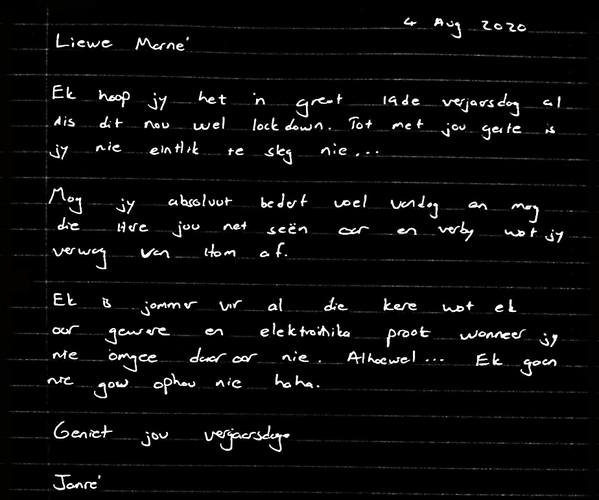 4 Aug 2020
Liewe Marné
Ek hoop jy het 'n great 19de verjaarsdag al
dis dit nou wel lockdown. Tot met jou geite is
jy nie eintlik te sleg nie...
Mog jy absoluut bederf voel vandag en mag
die Here jou net seën oor en verby wat jy
verwag van Hom af.
Ek is jammer vir al die kere wat ek
oor gewere en elektronika praat wanneer jy
nie omgee daaroor nie. Alhoewel... Ek gaan
nie gou ophou nie haha.
Geniet jou verjaarsdag
Janré